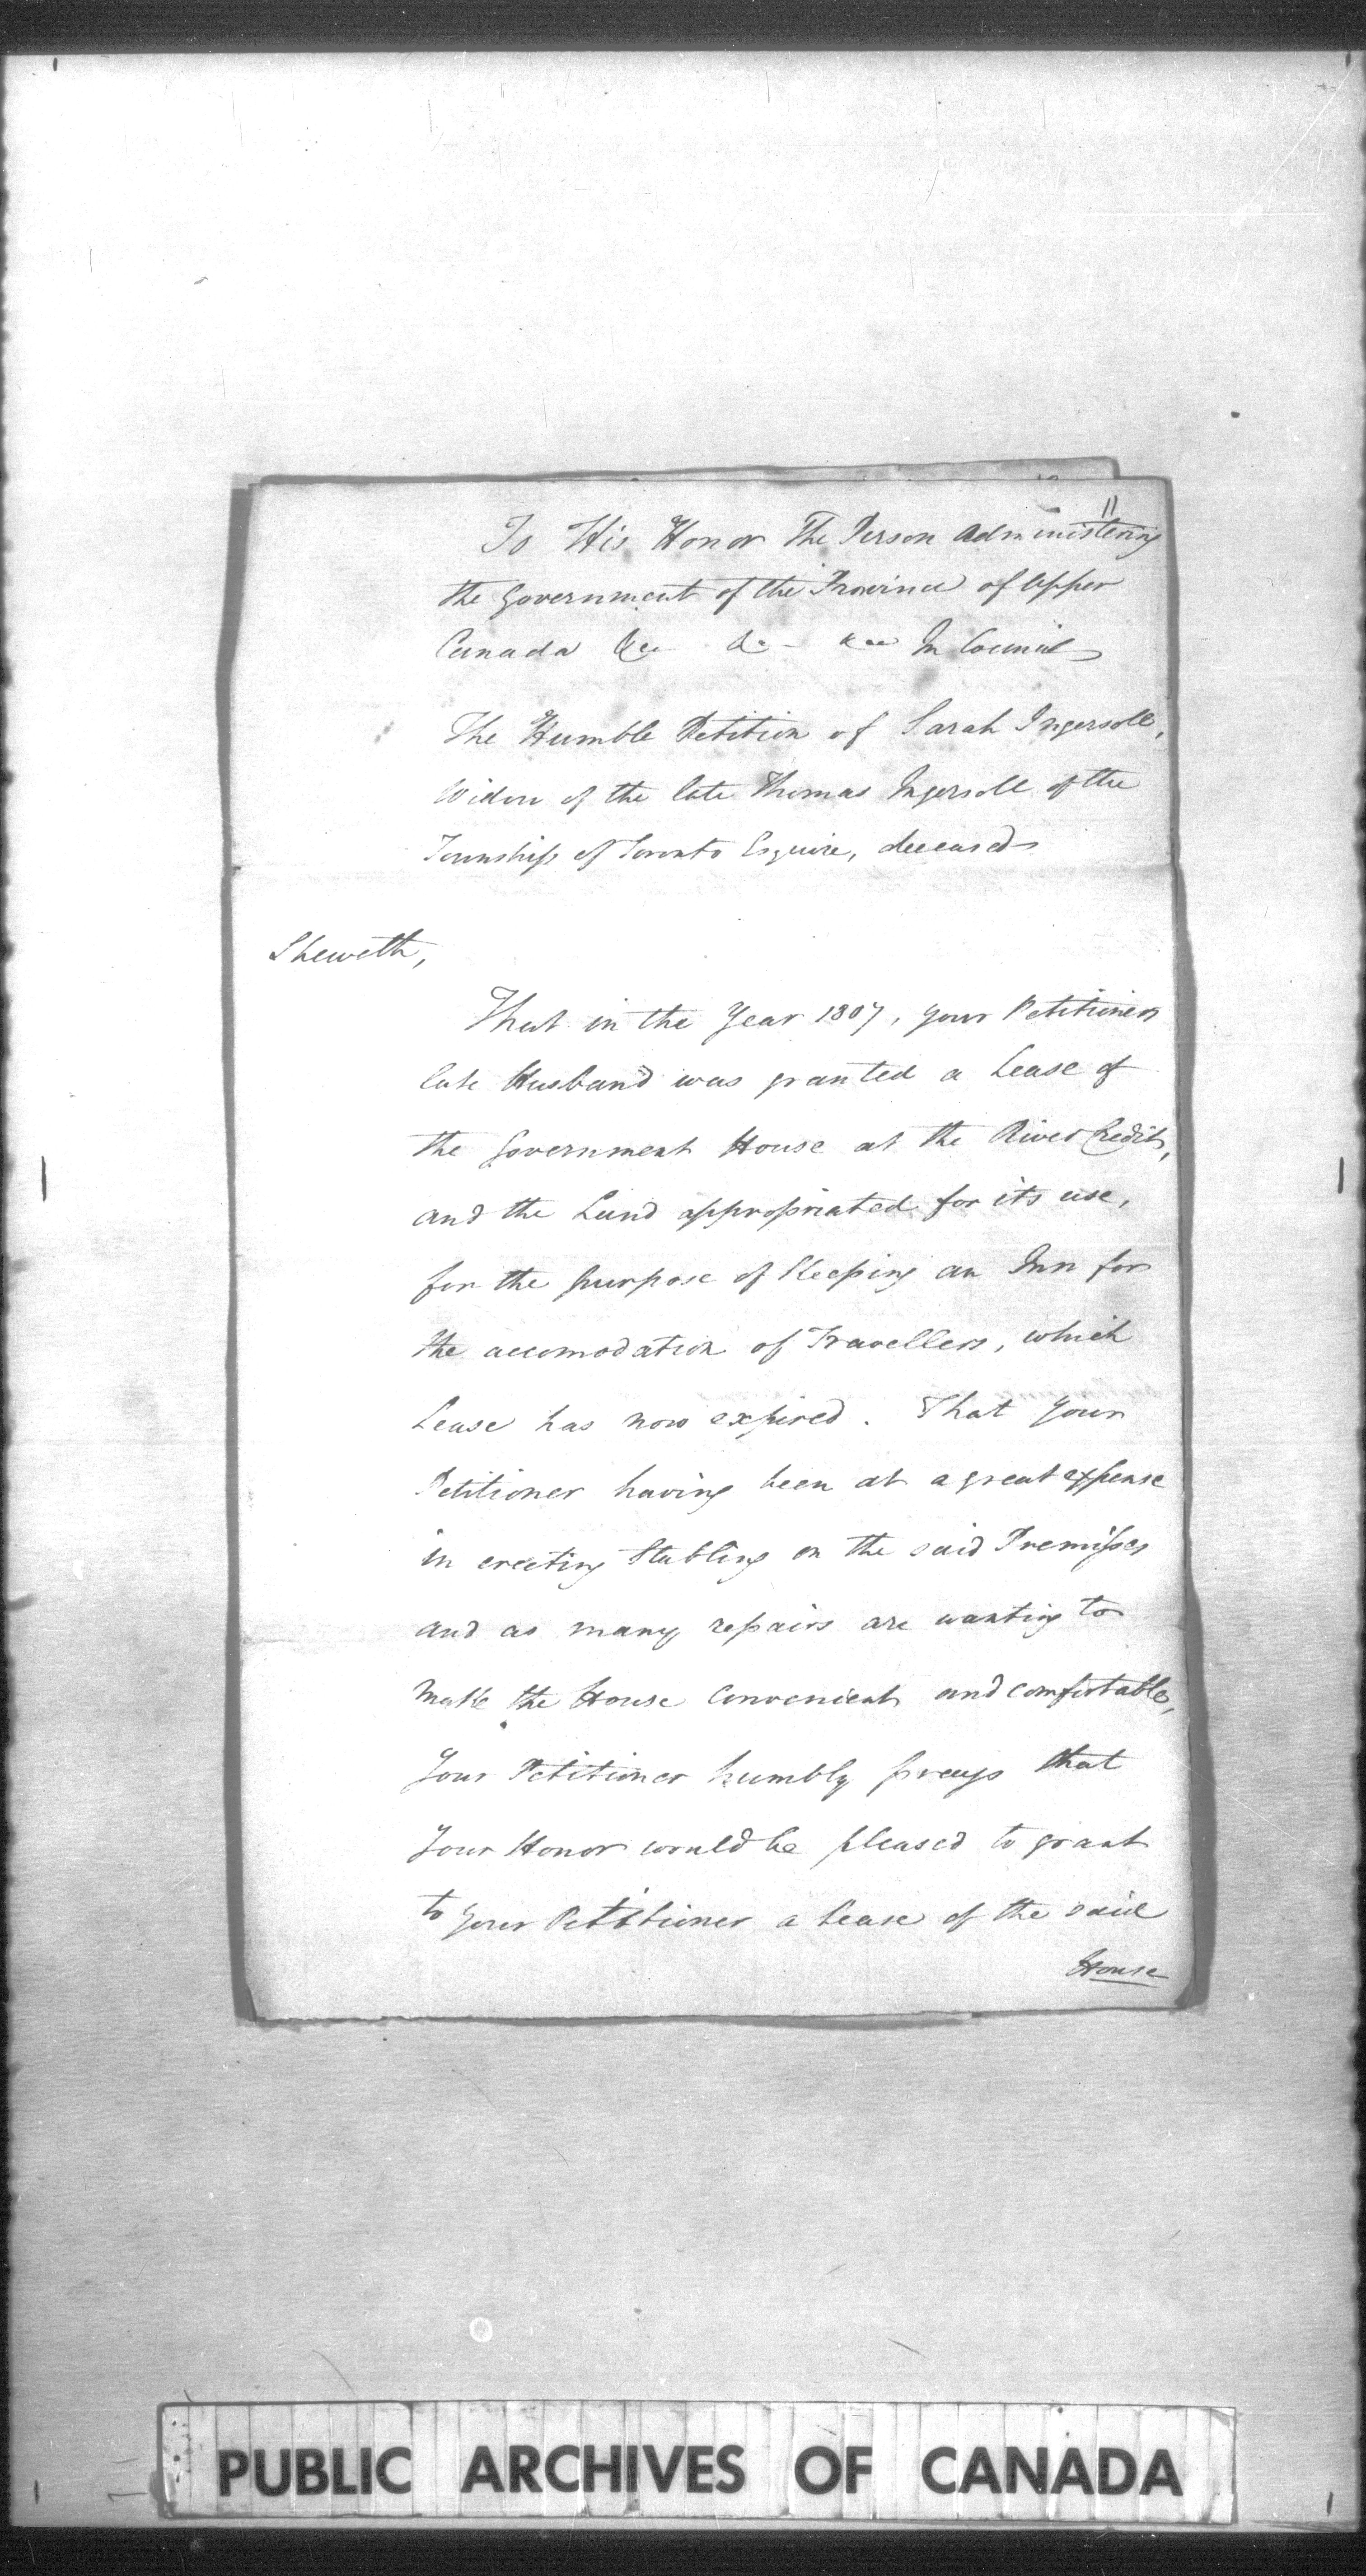 11
To His Honor The Person Administering
the Government of the Province of Upper
Canada &ca &c - &ca In Council
The Humble Petition of Sarah Ingersoll,
Widow of the late Thomas Ingersoll of the
Township of Toronto Esquire, deceased
Sheweth,
That in the Year 1807, your Petitioners
late Husband was granted a Lease of
the Government House at the River Credit,
and the Land appropriated for its use,
for the purpose of Keeping an Inn for
the accomodation of Travellers, which
Lease has now expired. That your
Petitioner having been at a great expense
in erecting Stabling on the said Premisses
and as many repairs are wanting to
make the House convenient and comfortable,
Your Petitioner humbly prays that
Your Honor would be pleased to grant
to your Petitioner a Lease of the said
House
PUBLIC ARCHIVES OF CANADA